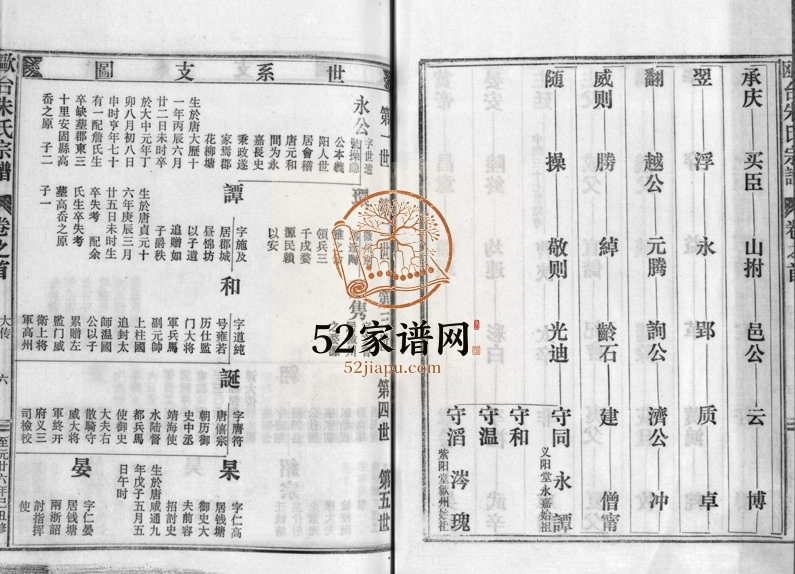 承庆 买臣 山拊 邑公 云 博
翌 浮 永 郢 质 卓
翻 越公 元腾 詢公 濟公 冲
威则 勝 綽 齡石 建 僧甯
随 操 敬则 光迪 守同 永 譚
义阳堂永嘉始祖
守和
守温
守滔 涔 瑰
紫阳堂歙州始祖
世系支圖
第一世
第四世
第五世
永公
字世達
公本義
阳人世
居會稽
唐元和
間为永
嘉長史
秉政遂
家晋郡
花柳塘
生於唐大曆十
一年丙辰六月
廿二日未时卒
於大中元年丁
卯八月初八日
申时亨年七十
有一配詹氏生
卒缺塟郡東三
十里安固縣高
岙之原 子二
領兵三
千戌婺
源民賴
以安
譚
字施及
居郡城
昼锦坊
以子道
追赠如
子爵秩
生於唐貞元十
六年庚辰三月
廿五日未时生
卒失考 配余
氏生卒失考
塟高岙之原
子一
和
字道純
号雍若
历仕監
门大将
军兵馬
副元帥
上柱國
追封太
師温國
公以子
累赠左
監门威
衛上將
軍高州
誕
字膺符
唐僖宗
朝历御
史中丞
靖海使
水陸督
都兵馬
使御史
大夫右
散騎守
威大将
軍終开
府义三
司檢校
杲
字仁高
居钱塘
御史大
夫前容
招討史
生於唐咸通九
年戊子五月五
日午时
晏
字仁晏
居钱塘
兩浙詔
討指揮
使
歐台朱氏宗譜
卷之首
大传
六
52家谱网
52jiapu.com